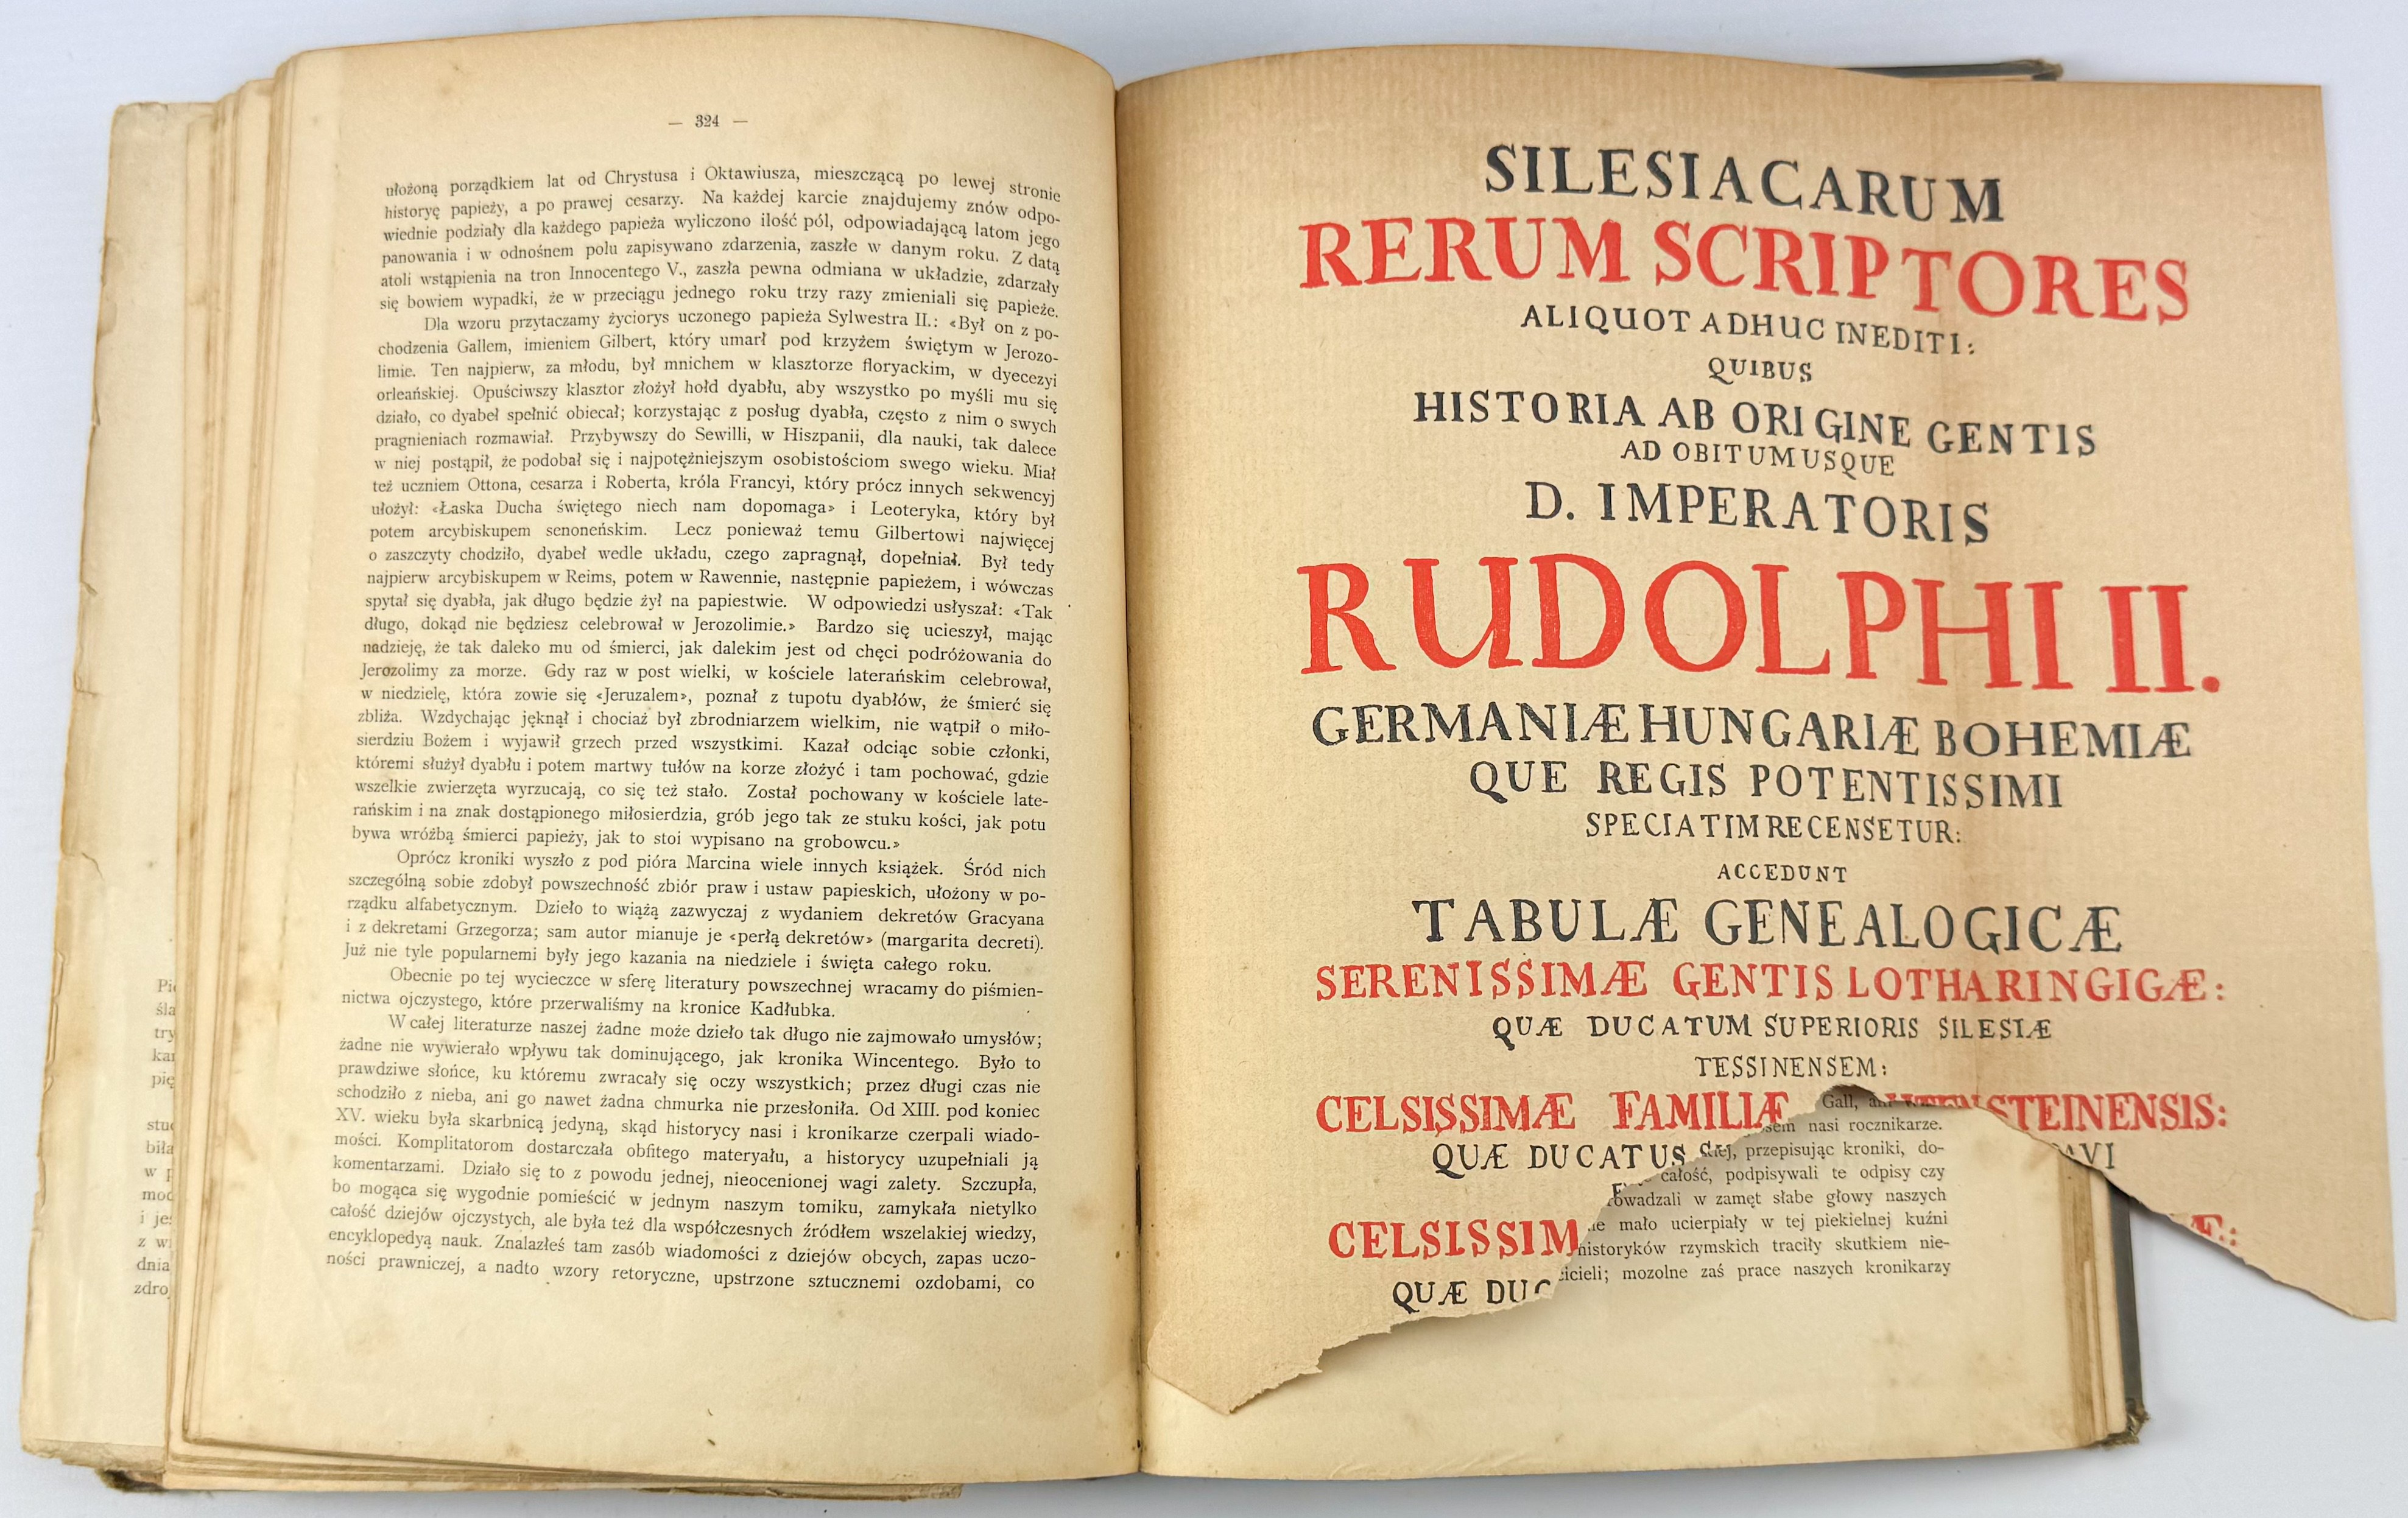 — 324 —
ułożoną porządkiem lat od Chrystusa i Oktawiusza, mieszczącą po lewej stronie
historyę papieży, a po prawej cesarzy. Na każdej karcie znajdujemy znów odpo-
wiednie podziały dla każdego papieża wyliczono ilość pól, odpowiadającą latom jego
panowania i w odnośnem polu zapisywano zdarzenia, zaszłe w danym roku. Z datą
atoli wstąpienia na tron Innocentego V., zaszła pewna odmiana w układzie, zdarzały
się bowiem wypadki, że w przeciągu jednego roku trzy razy zmieniali się papieże.
Dla wzoru przytaczamy życiorys uczonego papieża Sylwestra II.: «Był on z po-
chodzenia Gallem, imieniem Gilbert, który umarł pod krzyżem świętym w Jerozo-
limie. Ten najpierw, za młodu, był mnichem w klasztorze floryackim, w dyecezyi
orleańskiej. Opuściwszy klasztor złożył hołd dyabłu, aby wszystko po myśli mu się
działo, co dyabeł spełnić obiecał; korzystając z posług dyabła, często z nim o swych
pragnieniach rozmawiał. Przybywszy do Sewilli, w Hiszpanii, dla nauki, tak dalece
w niej postąpił, że podobał się i najpotężniejszym osobistościom swego wieku. Miał
też uczniem Ottona, cesarza i Roberta, króla Francyi, który prócz innych sekwencyj
ułożył: «Łaska Ducha świętego niech nam dopomaga» i Leoteryka, który był
potem arcybiskupem senoneńskim. Lecz ponieważ temu Gilbertowi najwięcej
o zaszczyty chodziło, dyabeł wedle układu, czego zapragnął, dopełniał. Był tedy
najpierw arcybiskupem w Reims, potem w Rawennie, następnie papieżem, i wówczas
spytał się dyabła, jak długo będzie żył na papiestwie. W odpowiedzi usłyszał: «Tak
długo, dokąd nie będziesz celebrował w Jerozolimie.» Bardzo się ucieszył, mając
nadzieję, że tak daleko mu od śmierci, jak dalekim jest od chęci podróżowania do
Jerozolimy za morze. Gdy raz w post wielki, w kościele laterańskim celebrował,
w niedzielę, która zowie się «Jeruzalem», poznał z tupotu dyabłów, że śmierć się
zbliża. Wzdychając jęknął i chociaż był zbrodniarzem wielkim, nie wątpił o miło-
sierdziu Bożem i wyjawił grzech przed wszystkimi. Kazał odciąc sobie członki,
któremi służył dyabłu i potem martwy tułów na korze złożyć i tam pochować, gdzie
wszelkie zwierzęta wyrzucają, co się też stało. Został pochowany w kościele late-
rańskim i na znak dostąpionego miłosierdzia, grób jego tak ze stuku kości, jak potu
bywa wróżbą śmierci papieży, jak to stoi wypisano na grobowcu.»
Oprócz kroniki wyszło z pod pióra Marcina wiele innych książek. Śród nich
szczególną sobie zdobył powszechność zbiór praw i ustaw papieskich, ułożony w po-
rządku alfabetycznym. Dzieło to wiążą zazwyczaj z wydaniem dekretów Gracyana
i z dekretami Grzegorza; sam autor mianuje je «perłą dekretów» (margarita decreti).
Już nie tyle popularnemi były jego kazania na niedziele i święta całego roku.
Obecnie po tej wycieczce w sferę literatury powszechnej wracamy do piśmien-
nictwa ojczystego, które przerwaliśmy na kronice Kadłubka.
W całej literaturze naszej żadne może dzieło tak długo nie zajmowało umysłów;
żadne nie wywierało wpływu tak dominującego, jak kronika Wincentego. Było to
prawdziwe słońce, ku któremu zwracały się oczy wszystkich; przez długi czas nie
schodziło z nieba, ani go nawet żadna chmurka nie przesłoniła. Od XIII. pod koniec
XV. wieku była skarbnicą jedyną, skąd historycy nasi i kronikarze czerpali wiado-
mości. Komplitatorom dostarczała obfitego materyału, a historycy uzupełniali ją
komentarzami. Działo się to z powodu jednej, nieocenionej wagi zalety. Szczupła,
bo mogąca się wygodnie pomieścić w jednym naszym tomiku, zamykała nietylko
całość dziejów ojczystych, ale była też dla współczesnych źródłem wszelakiej wiedzy,
encyklopedyą nauk. Znalazłeś tam zasób wiadomości z dziejów obcych, zapas uczo-
ności prawniczej, a nadto wzory retoryczne, upstrzone sztucznemi ozdobami, co
SILESIACARUM
RERUM SCRIPTORES
ALIQUOT ADHUC INEDITI:
QUIBUS
HISTORIA AB ORIGINE GENTIS
AD OBITUM USQUE
D. IMPERATORIS
RUDOLPHI II.
GERMANIÆ HUNGARIÆ BOHEMIÆ
QUE REGIS POTENTISSIMI
SPECIATIM RECENSETUR:
ACCEDUNT
TABULÆ GENEALOGICÆ
SERENISSIMÆ GENTIS LOTHARINGIGÆ:
QUÆ DUCATUM SUPERIORIS SILESIÆ
TESSINENSEM:
CELSISSIMÆ FAMILIÆ STEINENSIS:
QUÆ DUCATUS
CELSISSIM
QUÆ DUC
Gall,
nasi rocznikarze.
przepisując kroniki, do-
całość, podpisywali te odpisy czy
w zamęt słabe głowy naszych
mało ucierpiały w tej piekielnej kuźni
historyków rzymskich traciły skutkiem nie-
mozolne zaś prace naszych kronikarzy